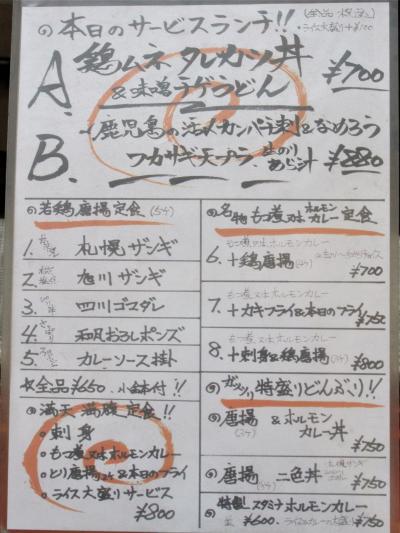 本日のサービスランチ!!
A. 鶏ムネタレカツ丼
&味噌チゲうどん ¥700
B. 鹿児島の活〆カンパチ刺&なめろう
ワカサギ天プラ 生のりあら汁 ¥880
若鶏唐揚定食(5ケ)
1. 札幌ザンギ
2. 旭川ザンギ
3. 四川ゴマダレ
4. 和風おろしポンズ
5. カレーソース掛
☆全品¥650 小鉢付!!
満天満腹定食!!
刺身
もつ煮又はホルモンカレー
とり唐揚2ケ&本日のフライ
ライス大盛りサービス
¥800
名物もつ煮又はホルモンカレー定食
もつ煮又はホルモンカレー
6. +鶏唐揚 ¥700
もつ煮又はホルモンカレー
7. +カキフライ&本日のフライ ¥750
もつ煮又はホルモンカレー
8. +刺身&鶏唐揚 ¥800
ガッツリ特盛りどんぶり!!
唐揚(3ケ)&ホルモンカレー丼 ¥750
唐揚 二色丼 ¥750
特製スタミナホルモンカレー
並¥600 ¥750